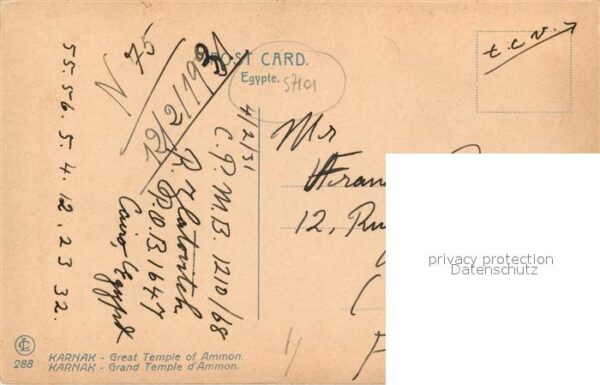 POST CARD.
Egypte.
57101
t.c.v.
N 75
12/2/1931
4/2/31
C.P.M.B. 1210/68
P.O.B. 1647
Cairo, Egypt
55. 56. 5. 4. 12. 23 32.
Mr
12, Ru
privacy protection
Datenschutz
288
KARNAK - Great Temple of Ammon.
KARNAK - Grand Temple d'Ammon.